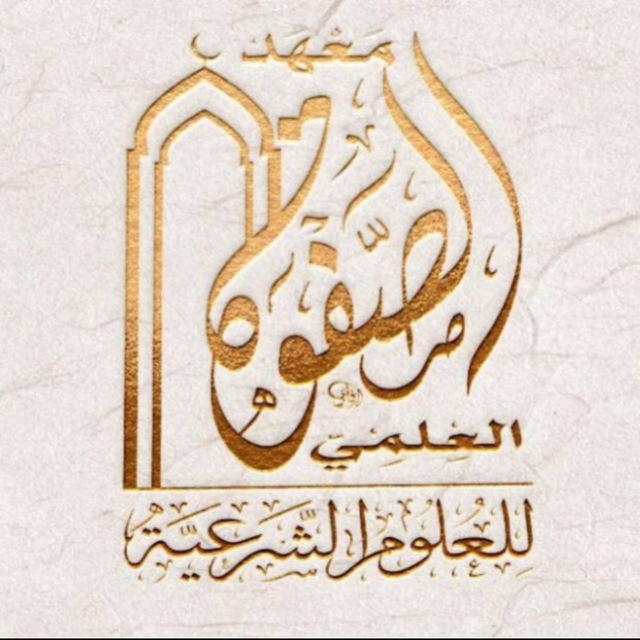 مَعْهَد
الصَّفوة
العِلمِي
لِلعُلومِ الشَّرعِيَّةِ